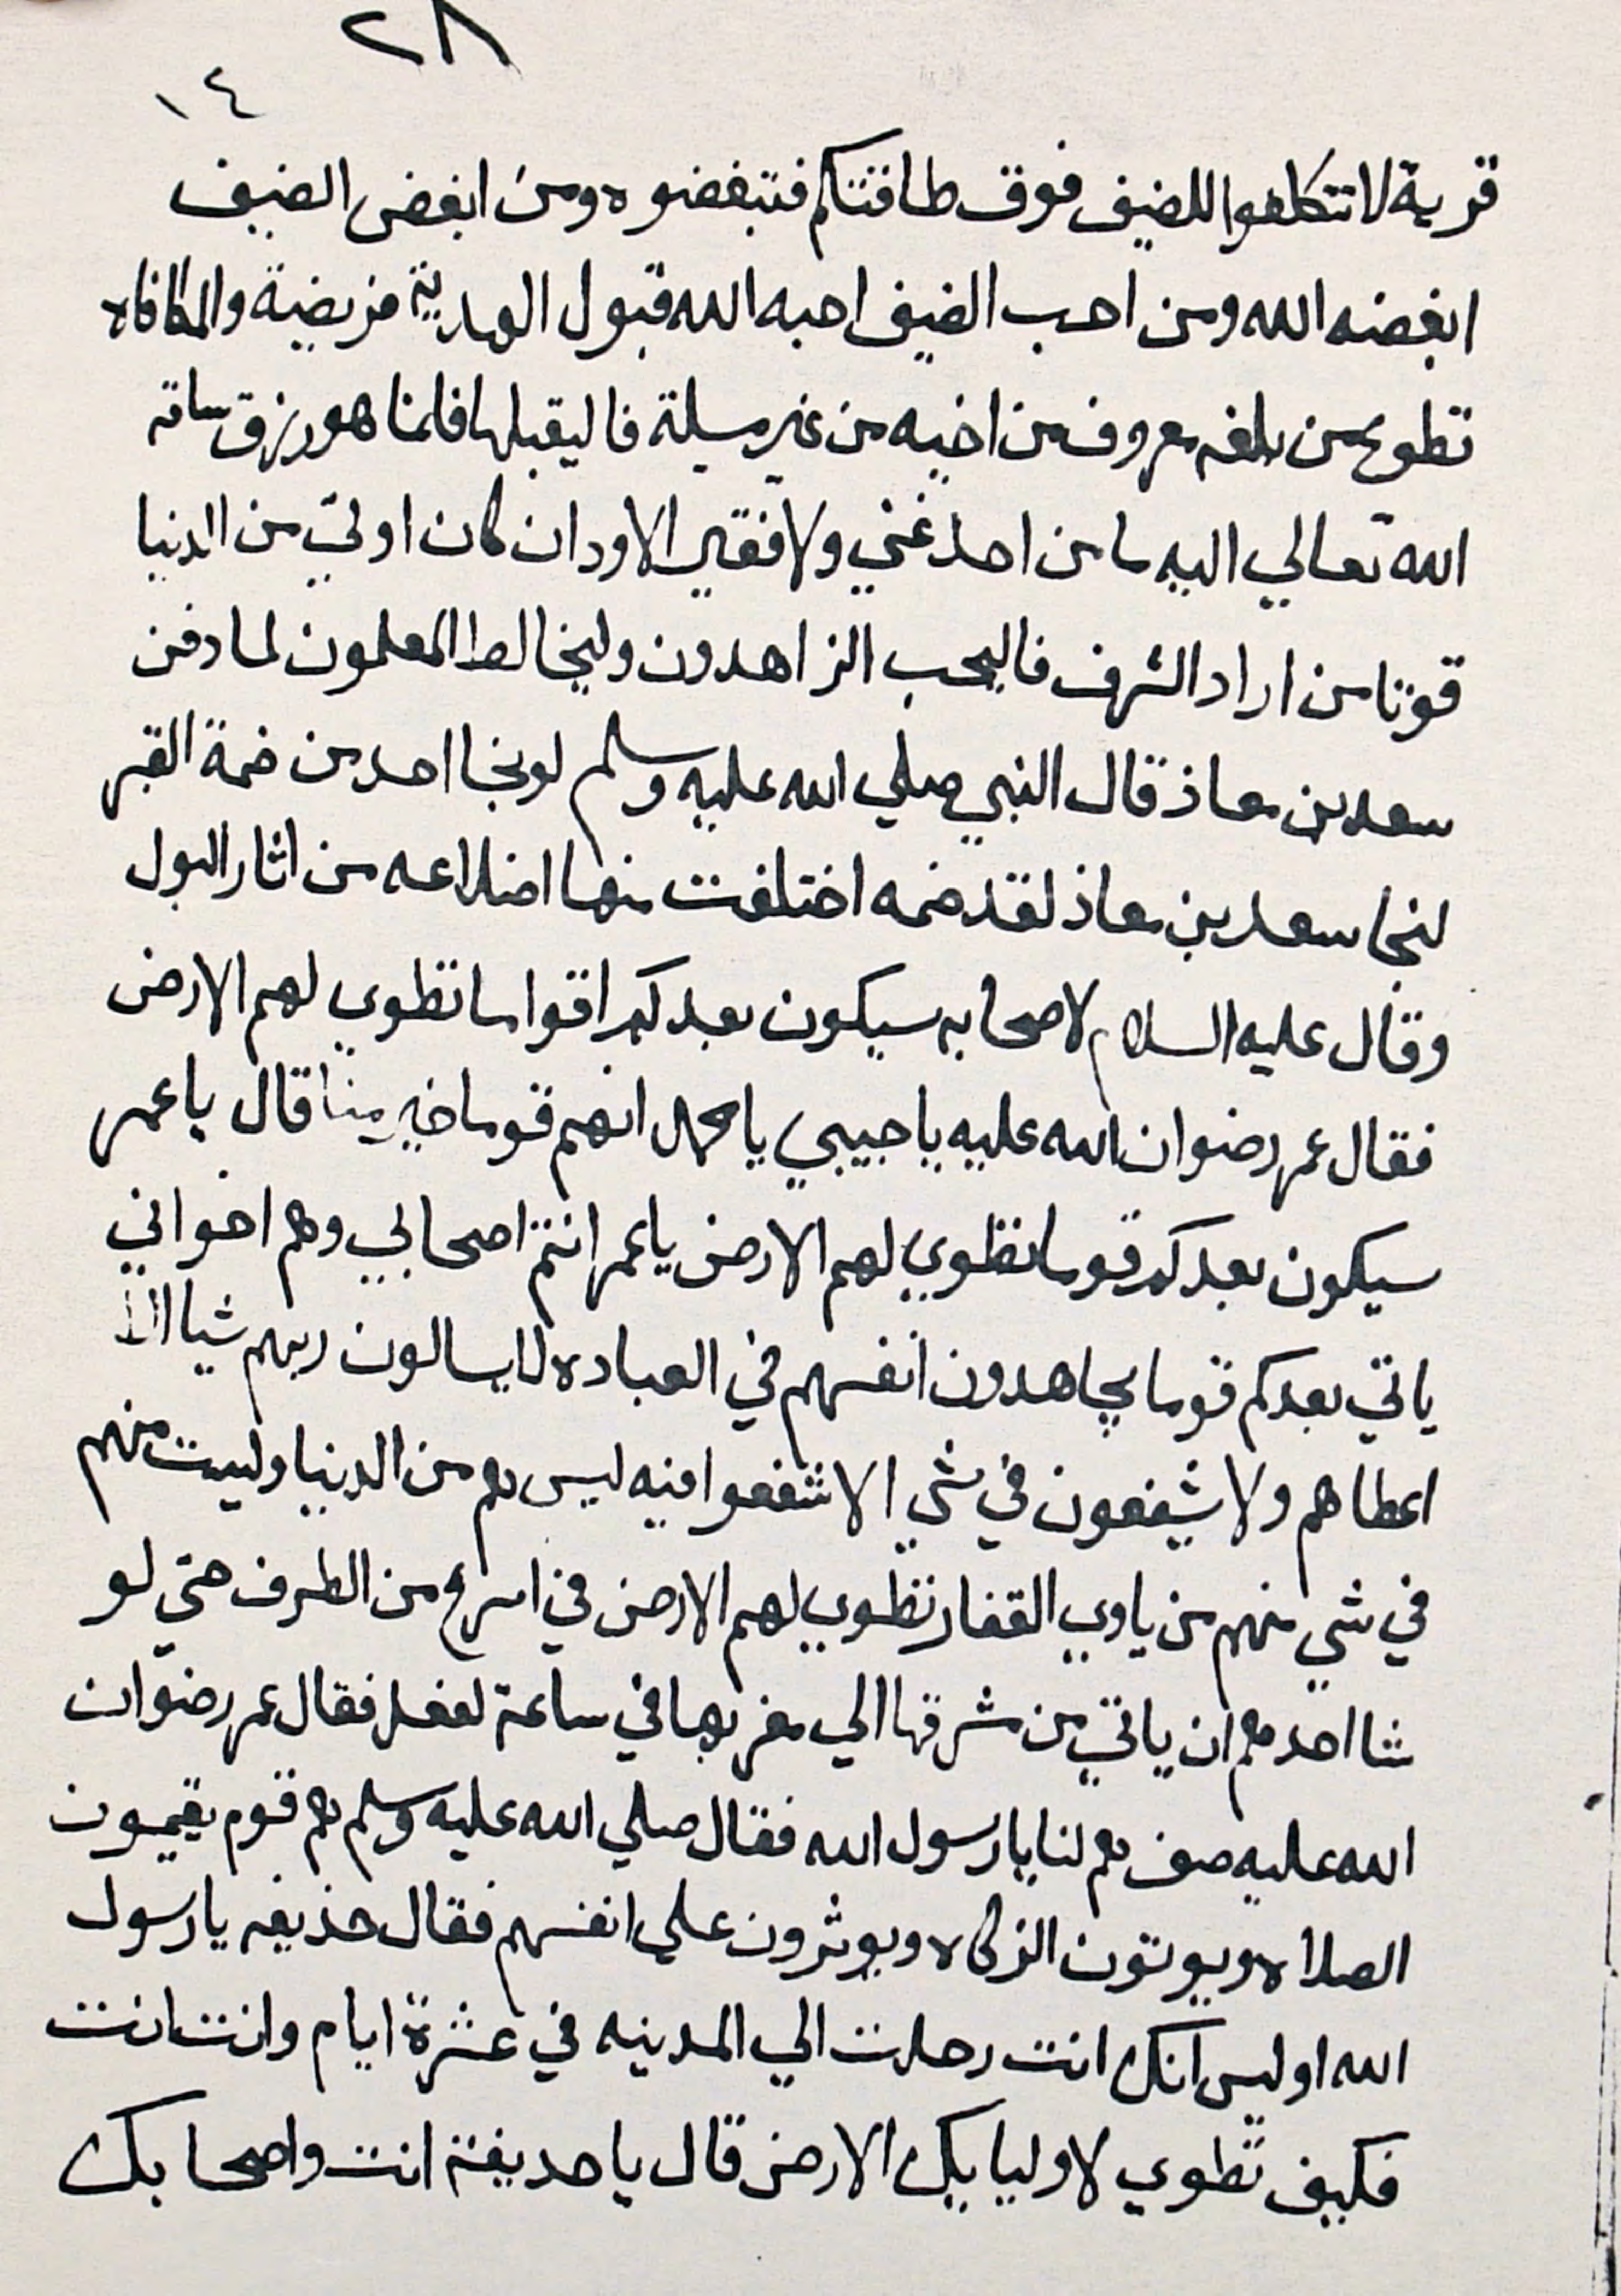 ٢٨
١٤
قرية لا تتكلفوا للضيف فوق طاقتكم فتبغضوه ومن ابغض الضيف
ابغضه الله ومن احب الضيف احبه الله قبول الهدية فريضية والمكافاه
تطوع من بلغه معروف من اخيه من غير مسيلة فاليقبلها فانما هو رزق ساقه
الله تعالي اليه ما من احد غني ولا فقير الا ود ان كان اوتي من الدنيا
قوتا من اراد الشرف فاليحب الزاهدون وليخالط المعلمون لما دفن
سعد بن معاذ قال النبي صلي الله عليه وسلم لو نجا احد من ضمة القبر
لنجا سعد بن معاذ لقد ضمه اختلفت منها اضلاعه من اثار البول
وقال عليه السلام لاصحابه سيكون بعدكم اقواما تطوي لهم الارض
فقال عمر رضوان الله عليه يا حبيبي يا محمد انهم قوما خير منا قال يا عمر
سيكون بعدكم قوما تطوي لهم الارض يا عمر انتم اصحابي وهم اخواني
ياتي بعدكم قوما يجاهدون انفسهم في العباده لا يسالون ربهم شيا الا
اعطاهم ولا يشفعون في شي الا شفعوا فيه ليس هم من الدنيا وليست منهم
في شي منهم من ياوي القفار تطوي لهم الارض في اسرع من الطرف حتي لو
شا احدهم ان ياتي من مشرقها الي مغربها في ساعة لفعل فقال عمر رضوان
الله عليه صف هم لنا يا رسول الله فقال صلي الله عليه وسلم هم قوم يقيمون
الصلاه ويوتون الزكاه ويوثرون علي انفسهم فقال حذيفه يا رسول
الله اوليس انك انت رحلت الي المدينه في عشرة ايام وانت انت
فكيف تطوي لاوليايك الارض قال يا حديفة انت واصحابك